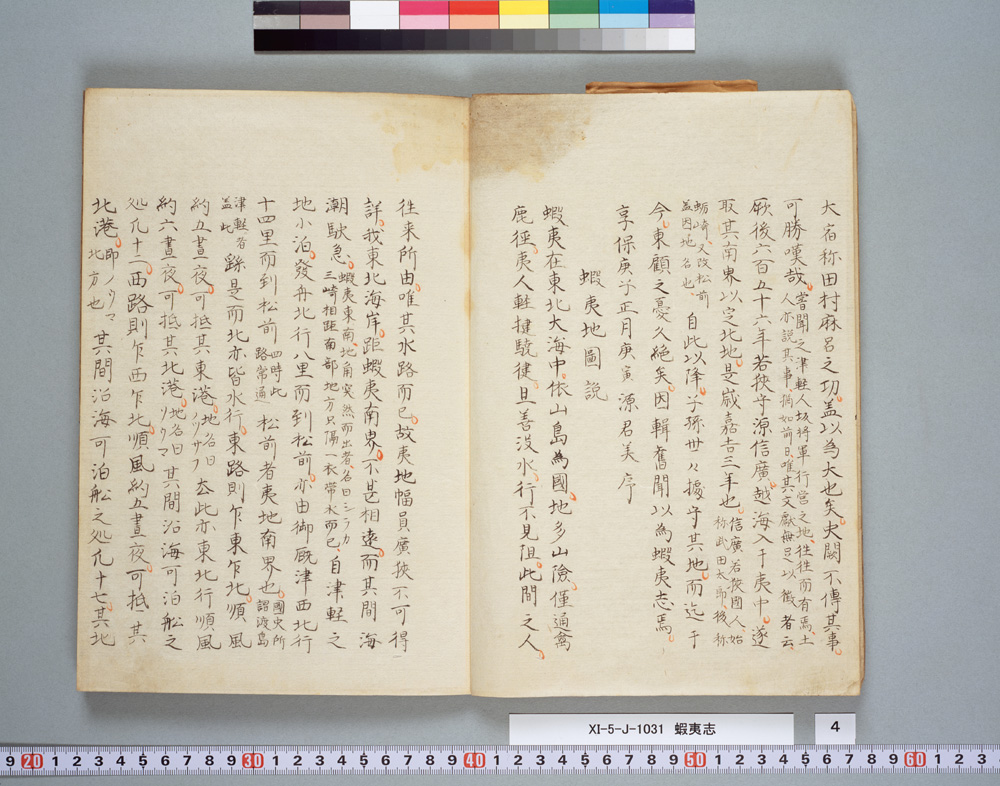 大宿称田村麻呂之功。盖以為大也矣。史闕不傳其事。
可勝嘆哉。嘗聞之津軽人。坂将軍行営之地。往往而有焉。土
人亦説其事。猶如前日。唯其文獻無足以徴者云。
厥後六百五十六年若狹守源信廣。越海入于夷中。遂
取其南界以定北地。是歳嘉吉三年也。信廣若狹國人始
称武田太郎。後称
蛎崎。又改松前
盖因地名也。自此以降。子孫世々擄守其地。而迄于
今。東顧之憂久絶矣。因輯舊聞以為蝦夷志焉。
享保庚子正月庚寅源君美序
蝦夷地圖説
蝦夷在東北大海中。依山島為國。地多山險。僅通禽
鹿徑。夷人軽揵驍健。且善没水。行不見阻。此間之人
往来所由唯其水路而已。故夷地幅員廣狹不可得
詳。我東北海岸。距蝦夷南界。不甚相遠。而其間海
潮駃急。蝦夷東南。地角突然而出者。名曰シラカ
三崎相距南部地方只隔一衣帯水而已。自津軽之
地小泊。發舟北行八里而到松前。亦由御厩津西北行
十四里而到松前四時此
路常通松前者夷地南界也。國史所
謂渡島
津軽者
盖此 繇是而北亦皆水行。東路則乍東乍北。順風
約五晝夜。可抵其東港。地名曰
ノツサフ去此亦東北行順風
約六晝夜。可抵其北港。地名曰
ソウマ其間沿海可泊舩之
処凡十二。西路則乍西乍北。順風約五晝夜。可抵其
北港。即ソウマ
北方也其間沿海可泊舩之処凡十七。其北
XI-5-J-1031 蝦夷志
4
9 20 1 2 3 4 5 6 7 8 9 30 1 2 3 4 5 6 7 8 9 40 1 2 3 4 5 6 7 8 9 50 1 2 3 4 5 6 7 8 9 60 1 2 3